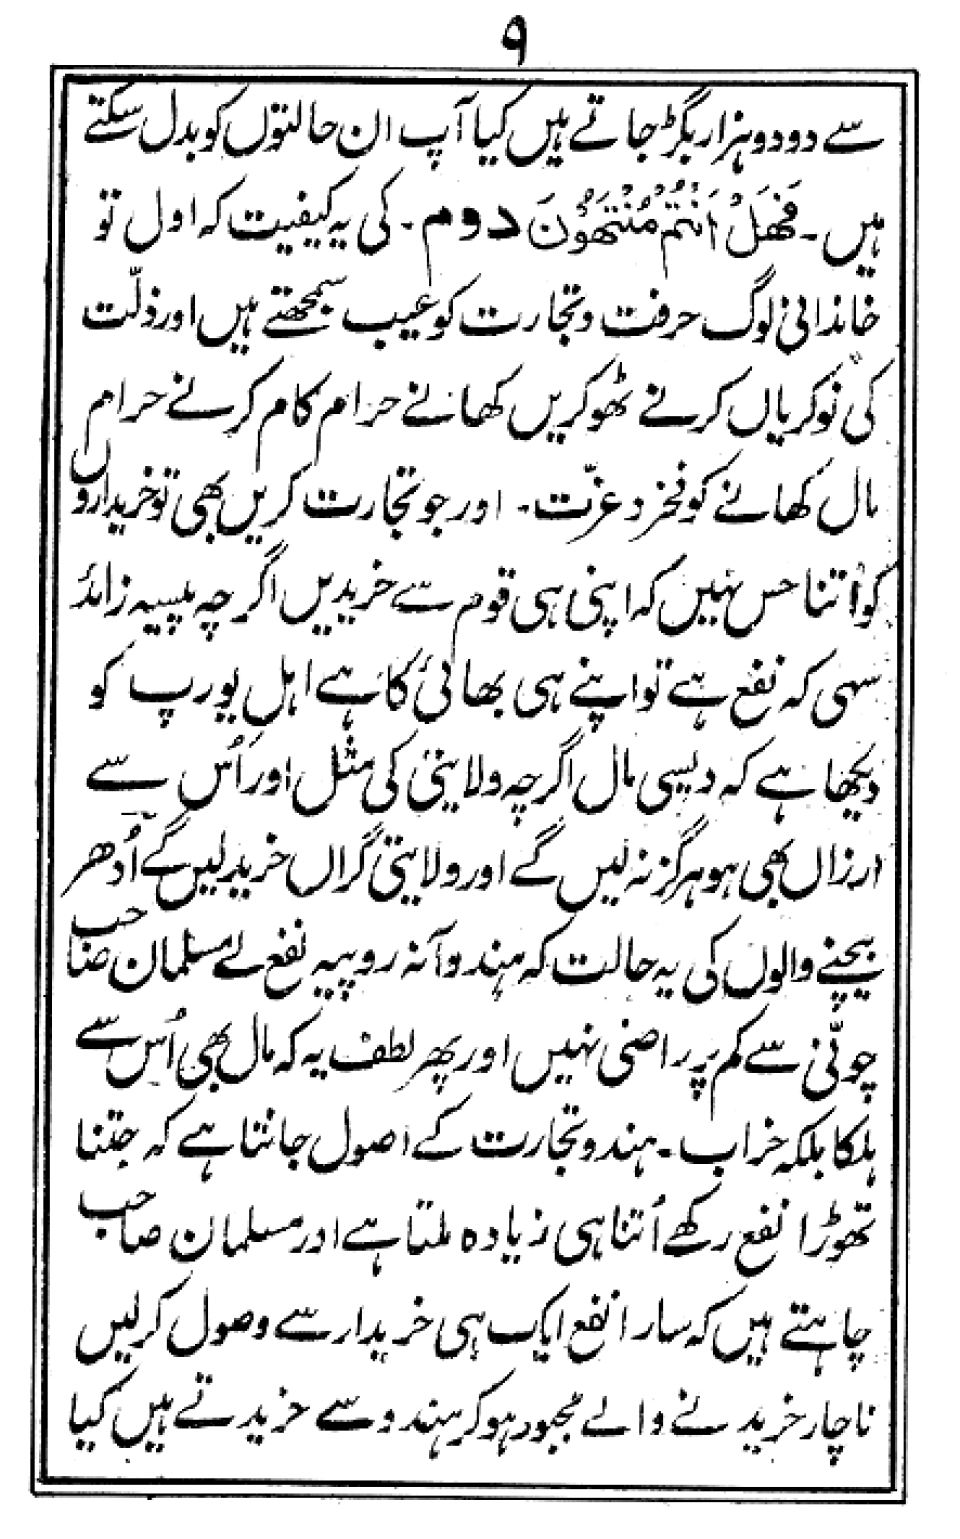 ۹
سے دو دو ہزار بگڑ جاتے ہیں کیا آپ ان حالتوں کو بدل سکتے
ہیں۔ فَهَلْ اَنْتُمْ مُنْتَهُوْنَ دوم۔ کی یہ کیفیت کہ اول تو
خاندانی لوگ حرفت وتجارت کو عیب سمجھتے ہیں اور ذلّت
کی نوکریاں کرنے ٹھوکریں کھانے حرام کام کرنے حرام
مال کھانے کو فخر وعزّت۔ اور جو تجارت کریں بھی تو خریداروں
کو اُتنا حس نہیں کہ اپنی ہی قوم سے خریدیں اگرچہ پیسہ زائد
سہی کہ نفع ہے تو اپنے ہی بھائی کا ہے اہلِ یورپ کو
دیکھا ہے کہ دیسی مال اگرچہ ولایتی کی مثل اور اُس سے
ارزاں بھی ہو ہرگز نہ لیں گے اور ولایتی گراں خرید لیں گے اُدھر
بیچنے والوں کی یہ حالت کہ ہندو آنہ روپیہ نفع لے مسلمان صاحب
چونّی سے کم پر راضی نہیں اور پھر لطف یہ کہ مال بھی اُس سے
ہلکا بلکہ خراب۔ ہندو تجارت کے اصول جانتا ہے کہ جتنا
تھوڑا نفع رکھے اُتنا ہی زیادہ ملتا ہے اور مسلمان صاحب
چاہتے ہیں کہ سارا نفع ایک ہی خریدار سے وصول کرلیں
ناچار خریدنے والے مجبور ہوکر ہندو سے خریدتے ہیں کیا